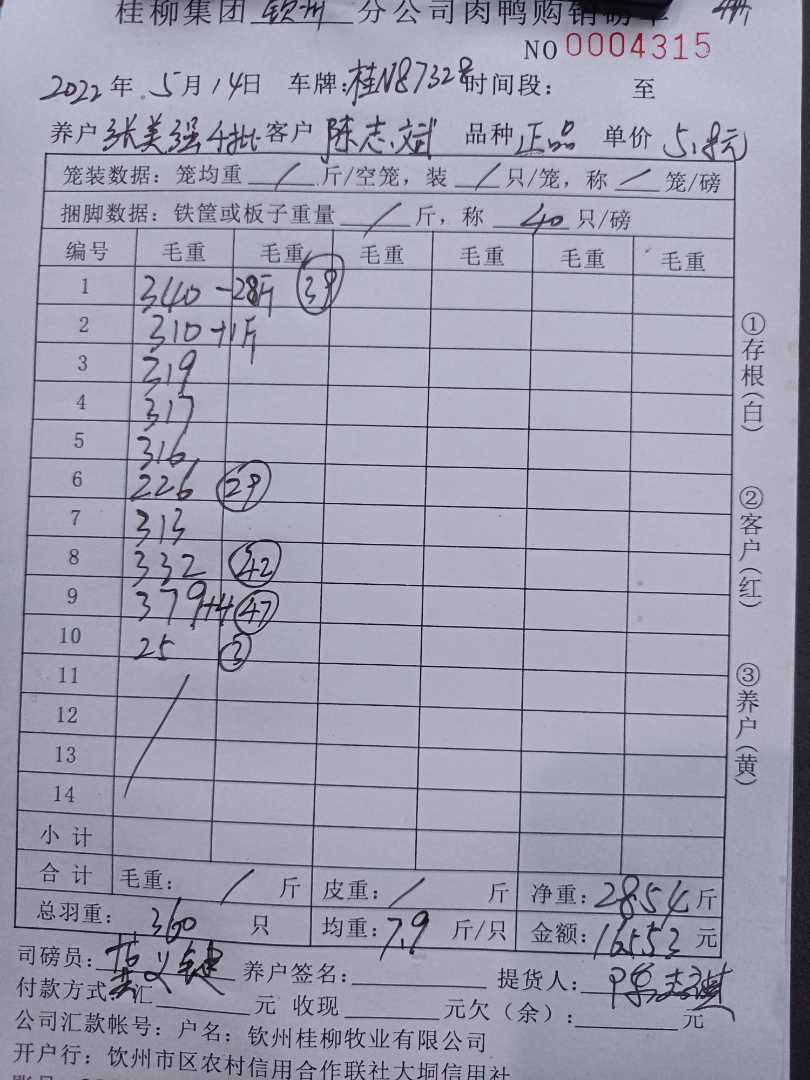 桂柳集团 钦州 分公司肉鸭购销磅单
NO 0004315
2022年 5月14日 车牌:桂N87328 时间段: 至
养户 张美强4批 客户 陈志斌 品种 正品 单价 5.8元
笼装数据:笼均重 / 斤/空笼,装 / 只/笼,称 / 笼/磅
捆脚数据:铁筐或板子重量 / 斤,称 40 只/磅
编号 毛重 毛重 毛重 毛重 毛重 毛重
1 340 -28斤 39
2 310 +1斤
3 219
4 317
5 316
6 226 29
7 313
8 332 42
9 379 +4 47
10 25 3
11
12
13
14
小计
合计 毛重: / 斤 皮重: / 斤 净重:2854 斤
总羽重: 360 只 均重:7.9 斤/只 金额:16553 元
司磅员: 养户签名: 提货人:
付款方式: 汇 元 收现 元欠(余): 元
公司汇款帐号:户名:钦州桂柳牧业有限公司
开户行:钦州市区农村信用合作联社大垌信用社
①存根(白)
②客户(红)
③养户(黄)